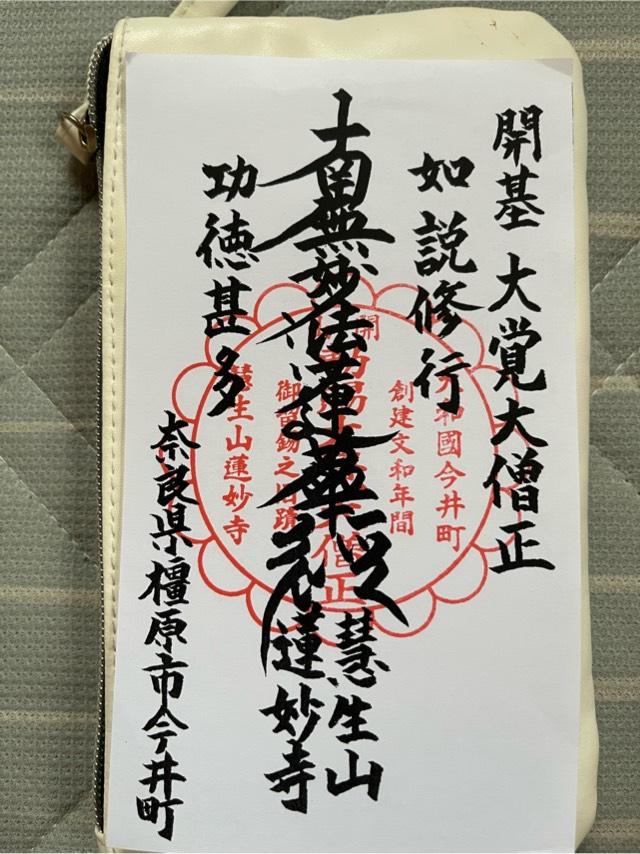 開基 大覚大僧正
如説修行
南無妙法蓮華経
功徳甚多
慧生山
蓮妙寺
奈良県橿原市今井町
大和國今井町
創建文和年間
開基
大僧正
御留錫之旧蹟
慧生山蓮妙寺